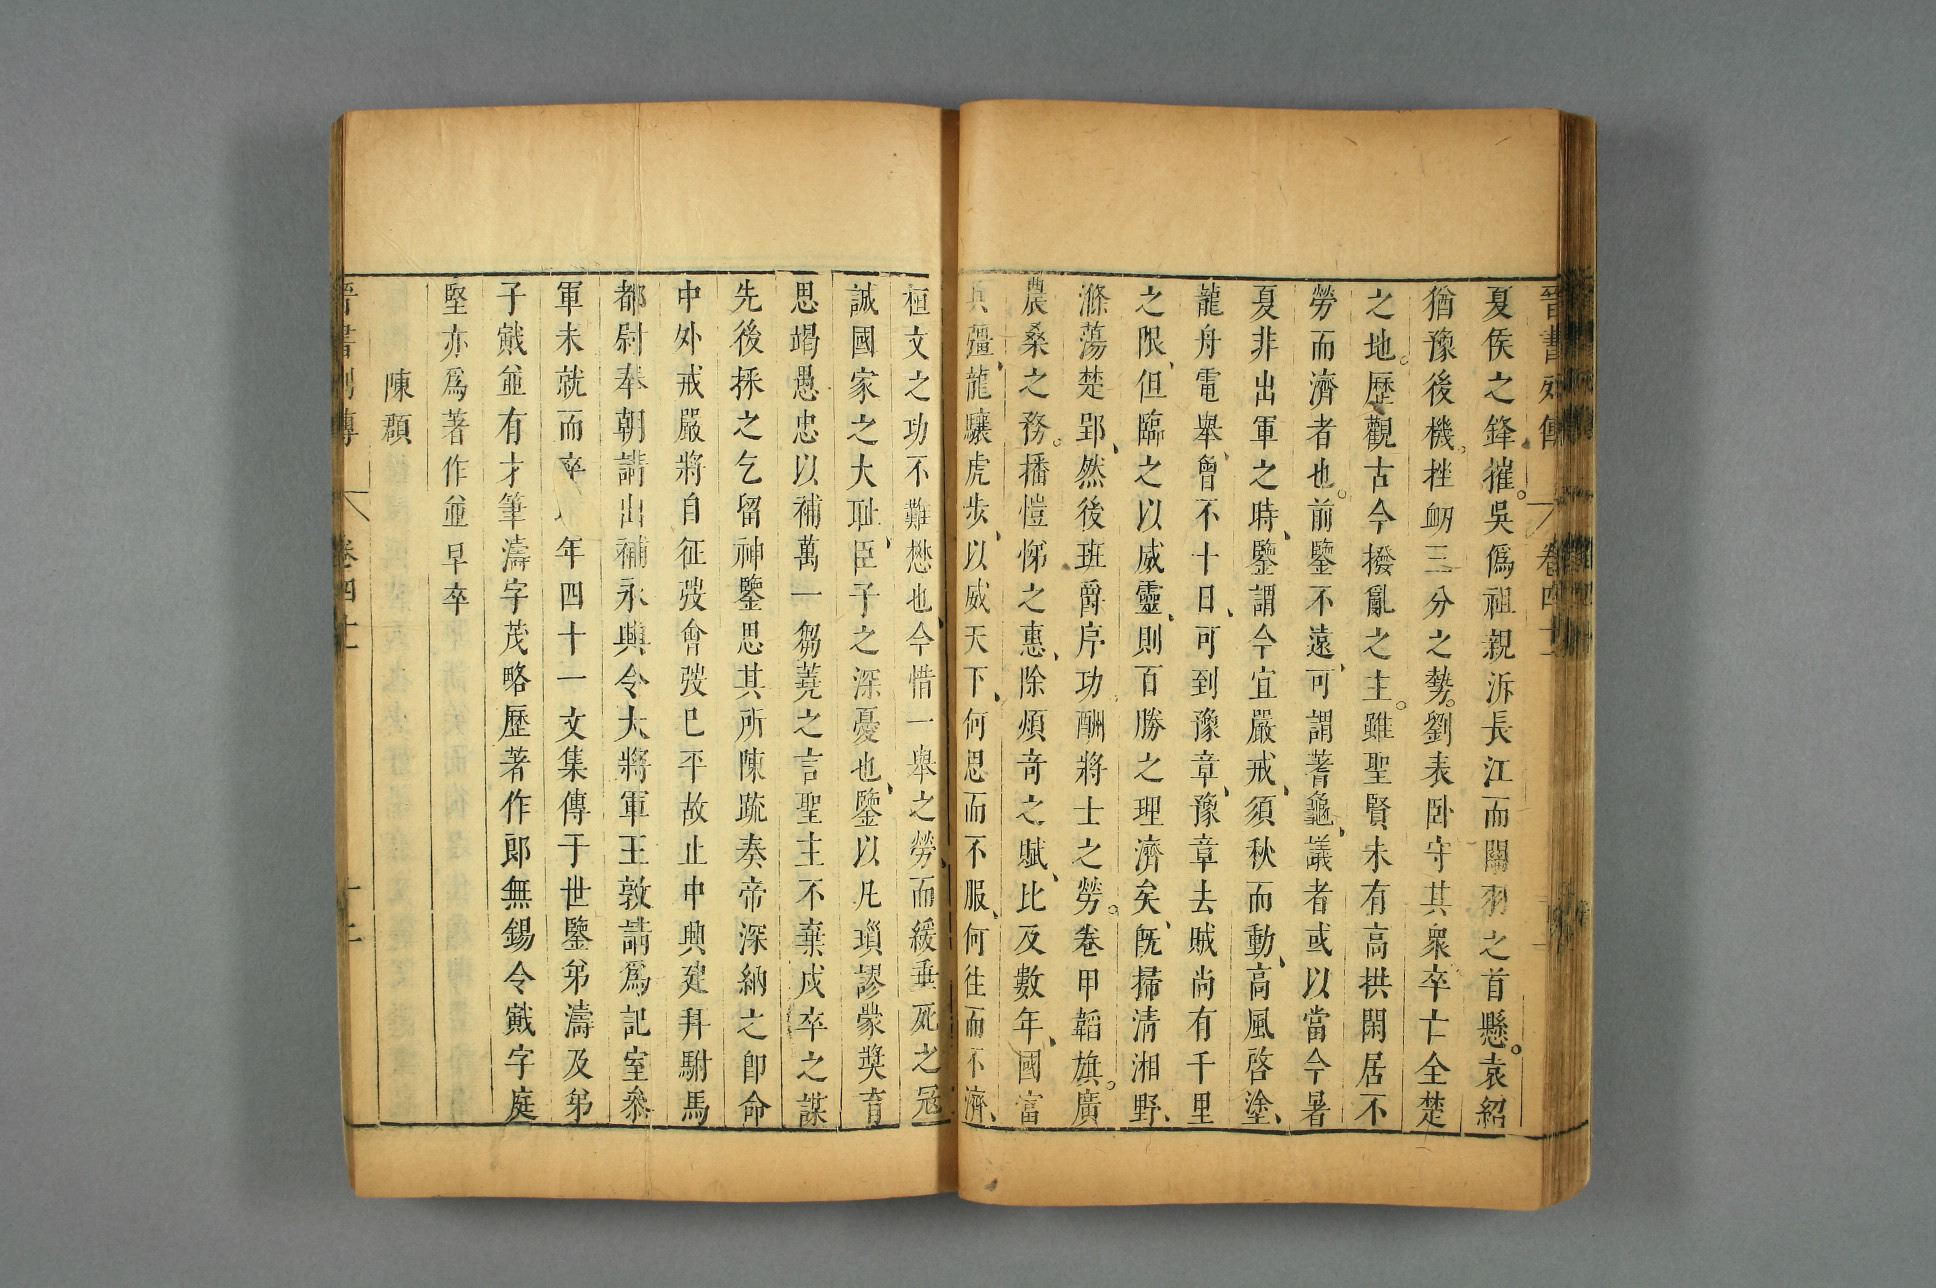 晉書列傳 卷四十一
夏侯之鋒摧。吳僞祖親泝長江而關羽之首懸。袁紹
猶豫後機。挫衂三分之勢。劉表臥守其衆卒亡全楚
之地。歷觀古今撥亂之主。雖聖賢未有高拱閑居不
勞而濟者也。前鑒不遠、可謂蓍龜、議者或以當今暑
夏非出軍之時、鑒謂今宜嚴戒、須秋而動、高風啓塗、
龍舟電舉、曾不十日、可到豫章、豫章去賊尚有千里
之限、但臨之以威靈、則百勝之理濟矣、旣掃清湘野、
滌蕩楚郢、然後班爵序功酬將士之勞。卷甲韜旗。廣
農桑之務。播愷悌之惠、除煩苛之賦、比及數年、國富
兵彊、龍驤虎步、以威天下、何思而不服、何往而不濟、
桓文之功不難懋也、今惜一舉之勞、而緩垂死之寇
誠國家之大恥、臣子之深憂也、鑒以凡瑣謬蒙奬育
思竭愚忠以補萬一芻蕘之言聖主不棄戍卒之謀
先後採之乞留神鑒思其所陳疏奏帝深納之卽命
中外戒嚴將自征弢會弢已平故止中興建拜駙馬
都尉奉朝請出補永興令大將軍王敦請爲記室參
軍未就而卒 年四十一文集傳于世鑒弟濤及弟
子戭並有才筆濤字茂略歷著作郎無錫令戭字庭
堅亦爲著作並早卒
陳頵
晉書列傳 卷四十一 十二